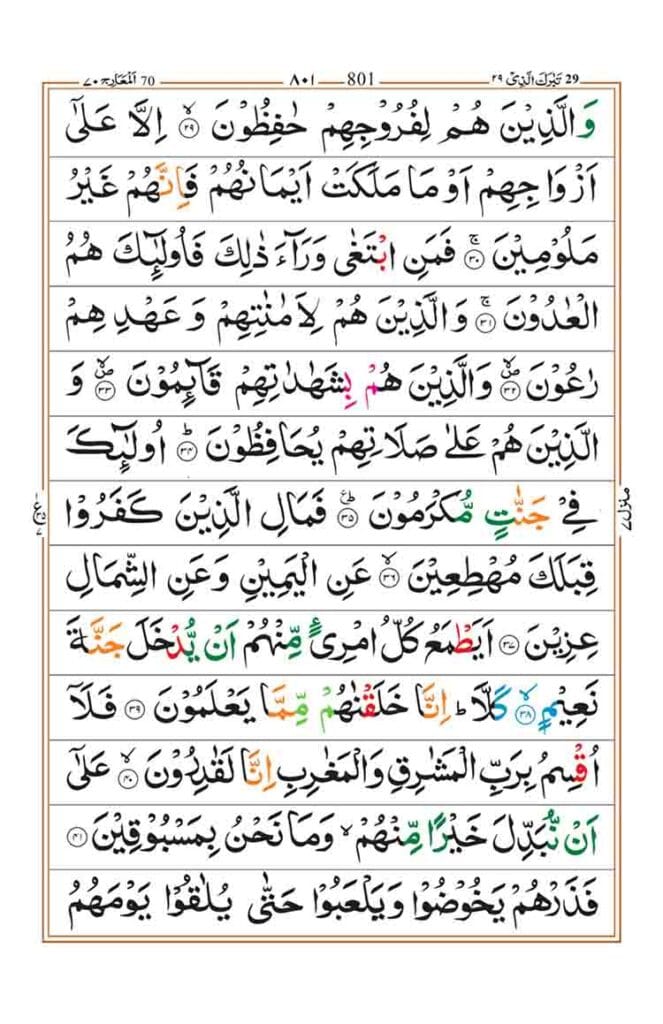 29 تَبٰرَكَ الَّذِىْ ٢٩ 801 ٨٠١ 70 اَلْمَعَارِج ٧٠
وَالَّذِيْنَ هُمْ لِفُرُوْجِهِمْ حٰفِظُوْنَ ۙ‏﴿۲۹﴾ اِلَّا عَلٰٓى
اَزْوَاجِهِمْ اَوْ مَا مَلَكَتْ اَيْمَانُهُمْ فَاِنَّهُمْ غَيْرُ
مَلُوْمِيْنَ‌ ۚ‏﴿۳۰﴾ فَمَنِ ابْتَغٰى وَرَآءَ ذٰلِكَ فَاُولٰٓئِكَ هُمُ
الْعٰدُوْنَ‌ ۚ‏﴿۳۱﴾ وَالَّذِيْنَ هُمْ لِاَمٰنٰتِهِمْ وَعَهْدِهِمْ
رٰعُوْنَ ۙ‏﴿۳۲﴾ وَالَّذِيْنَ هُمْ بِشَهٰدٰتِهِمْ قَآئِمُوْنَ ۙ‏﴿۳۳﴾ وَ
الَّذِيْنَ هُمْ عَلٰى صَلَاتِهِمْ يُحَافِظُوْنَؕ‏﴿۳۴﴾ اُولٰٓئِكَ
فِىْ جَنّٰتٍ مُّكْرَمُوْنَؕ ‏﴿۳۵﴾ فَمَالِ الَّذِيْنَ كَفَرُوْا
قِبَلَكَ مُهْطِعِيْنَۙ‏﴿۳۶﴾ عَنِ الْيَمِيْنِ وَعَنِ الشِّمَالِ
عِزِيْنَ‏﴿۳۷﴾ اَيَطْمَعُ كُلُّ امْرِىءٍ مِّنْهُمْ اَنْ يُّدْخَلَ جَنَّةَ
نَعِيْمٍۙ‏﴿۳۸﴾ كَلَّا ؕ اِنَّا خَلَقْنٰهُمْ مِّمَّا يَعْلَمُوْنَ‏﴿۳۹﴾ فَلَاۤ
اُقْسِمُ بِرَبِّ الْمَشٰرِقِ وَالْمَغٰرِبِ اِنَّا لَقٰدِرُوْنَۙ‏﴿۴۰﴾ عَلٰٓى
اَنْ نُّبَدِّلَ خَيْرًا مِّنْهُمْۙ وَمَا نَحْنُ بِمَسْبُوْقِيْنَ‏﴿۴۱﴾
فَذَرْهُمْ يَخُوْضُوْا وَيَلْعَبُوْا حَتّٰى يُلٰقُوْا يَوْمَهُمُ
منزل ٧